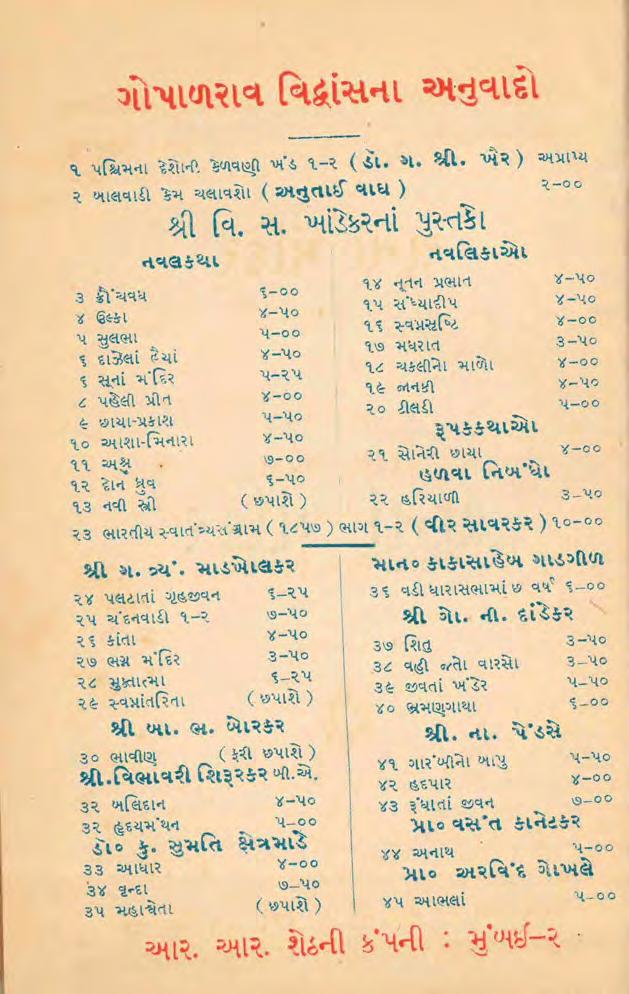 ગોપાળરાવ વિદ્વાંસના અનુવાદો
૧ પશ્ચિમના દેશોની કેળવણી ખંડ ૧–૨ ( ડૉ. ગ. શ્રી. ખેર ) અપ્રાપ્ય
૨ બાલવાડી કેમ ચલાવશો ( અનુતાઈ વાઘ ) ૨–૦૦
શ્રી વિ. સ. ખાંડેકરનાં પુસ્તકો
નવલકથા
૩ ક્રૌંચવધ ૬–૦૦
૪ ઉલ્કા ૪–૫૦
૫ સુલભા ૫–૦૦
૬ દાઝેલાં હૈયાં ૪–૫૦
૬ સૂનાં મંદિર ૫–૨૫
૮ પહેલી પ્રીત ૪–૦૦
૯ છાયા-પ્રકાશ ૫–૫૦
૧૦ આશા-મિનારા ૪–૫૦
૧૧ અશ્રુ ૭–૦૦
૧૨ દોન ધ્રુવ ૬–૫૦
૧૩ નવી સ્ત્રી ( છપાશે )
નવલિકાઓ
૧૪ નૂતન પ્રભાત ૪–૫૦
૧૫ સંધ્યાદીપ ૪–૫૦
૧૬ સ્વપ્નસૃષ્ટિ ૪–૦૦
૧૭ મધરાત ૩–૫૦
૧૮ ચકલીનો માળો ૪–૦૦
૧૯ જાનકી ૪–૫૦
૨૦ ડીલડી ૫–૦૦
રૂપકકથાઓ
૨૧ સોનેરી છાયા ૪–૦૦
હળવા નિબંધો
૨૨ હરિયાળી ૩–૫૦
૨૩ ભારતીય સ્વાતંત્ર્યસંગ્રામ ( ૧૮૫૭ ) ભાગ ૧–૨ ( વીર સાવરકર ) ૧૦–૦૦
શ્રી ગ. ત્ર્યં. માડખોલકર
૨૪ પલટાતાં ગૃહજીવન ૬–૨૫
૨૫ ચંદનવાડી ૧–૨ ૭–૫૦
૨૬ કાંતા ૪–૫૦
૨૭ ભગ્ન મંદિર ૩–૫૦
૨૮ મુક્તાત્મા ૬–૨૫
૨૯ સ્વપ્નાંતરિતા ( છપાશે )
શ્રી બા. ભ. બોરકર
૩૦ ભાવીણ ( ફરી છપાશે )
શ્રી. વિભાવરી શિરૂરકર બી.એ.
૩૨ બલિદાન ૪–૫૦
૩૨ હૃદયમંથન ૫–૦૦
ડૉ૦ કુ. સુમતિ ક્ષેત્રમાડે
૩૩ આધાર ૪–૦૦
૩૪ વૃન્દા ૭–૫૦
૩૫ મહાશ્વેતા ( છપાશે )
માન૦ કાકાસાહેબ ગાડગીળ
૩૬ વડી ધારાસભામાં ૭ વર્ષ ૬–૦૦
શ્રી ગો. ની. દાંડેકર
૩૭ શિતુ ૩–૫૦
૩૮ વહી જતો વારસો ૩–૫૦
૩૯ જીવતાં ખંડેર ૫–૫૦
૪૦ ભ્રમણગાથા ૬–૦૦
શ્રી. ના. પેંડસે
૪૧ ગારંબીનો બાપુ ૫–૫૦
૪૨ હદપાર ૪–૦૦
૪૩ રૂંધાતાં જીવન ૭–૦૦
પ્રા૦ વસંત કાનેટકર
૪૪ અનાથ ૫–૦૦
પ્રા૦ અરવિંદ ગોખલે
૪૫ આભલાં ૫–૦૦
આર. આર. શેઠની કંપની : મુંબઈ–૨